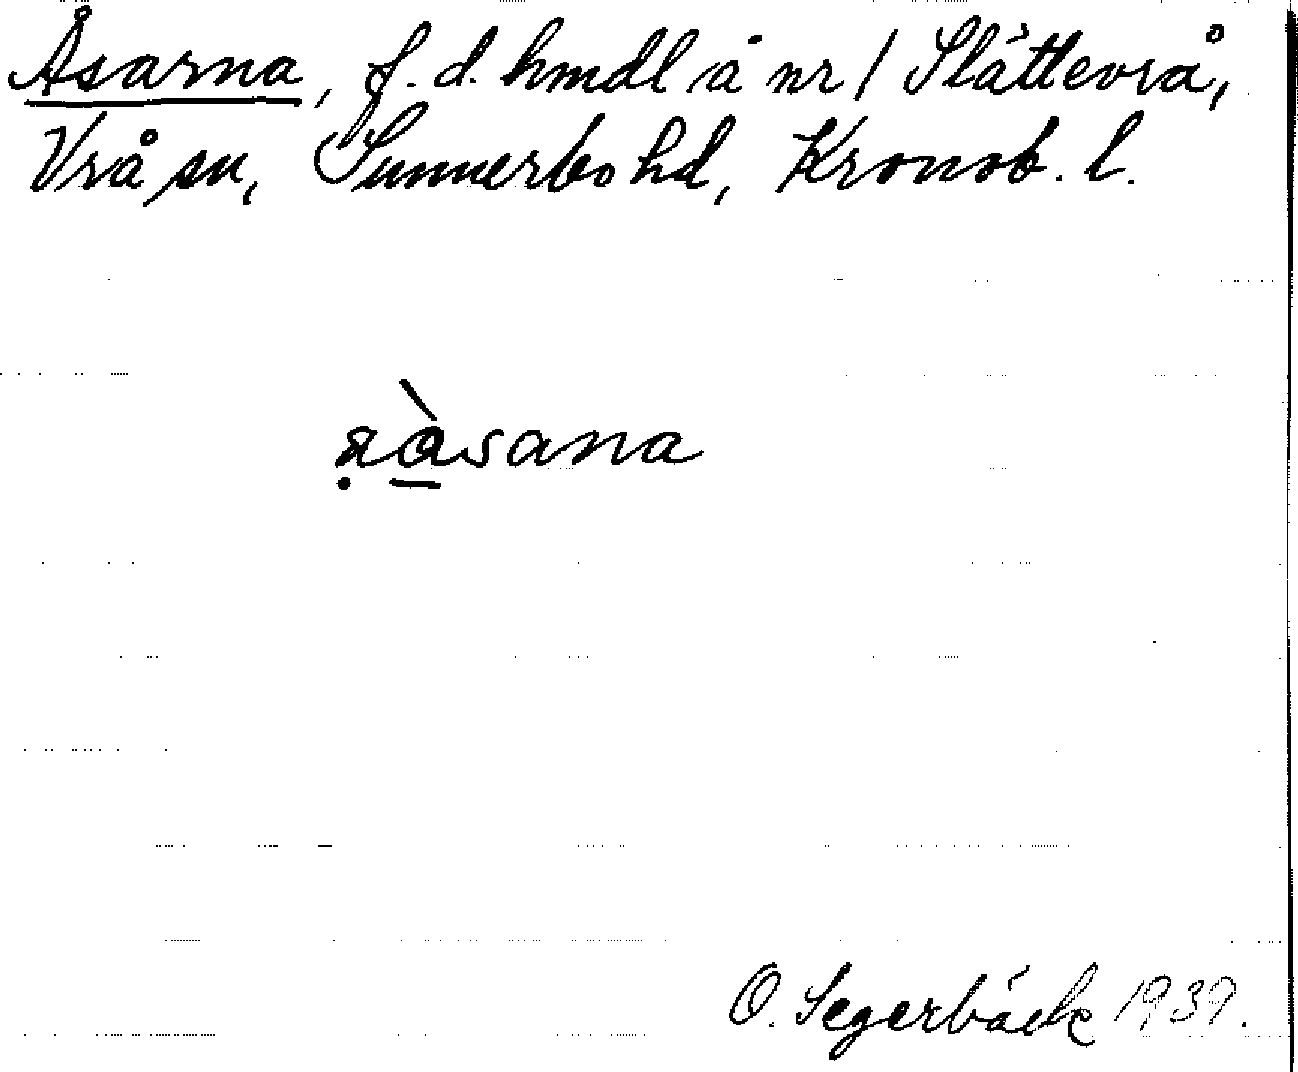 Åsarna, f. d. hmdl å nr 1 Slättevrå,
Vrå sn, Sunnerbo hd, Kronob. l.
O. Segerbäck 1939.